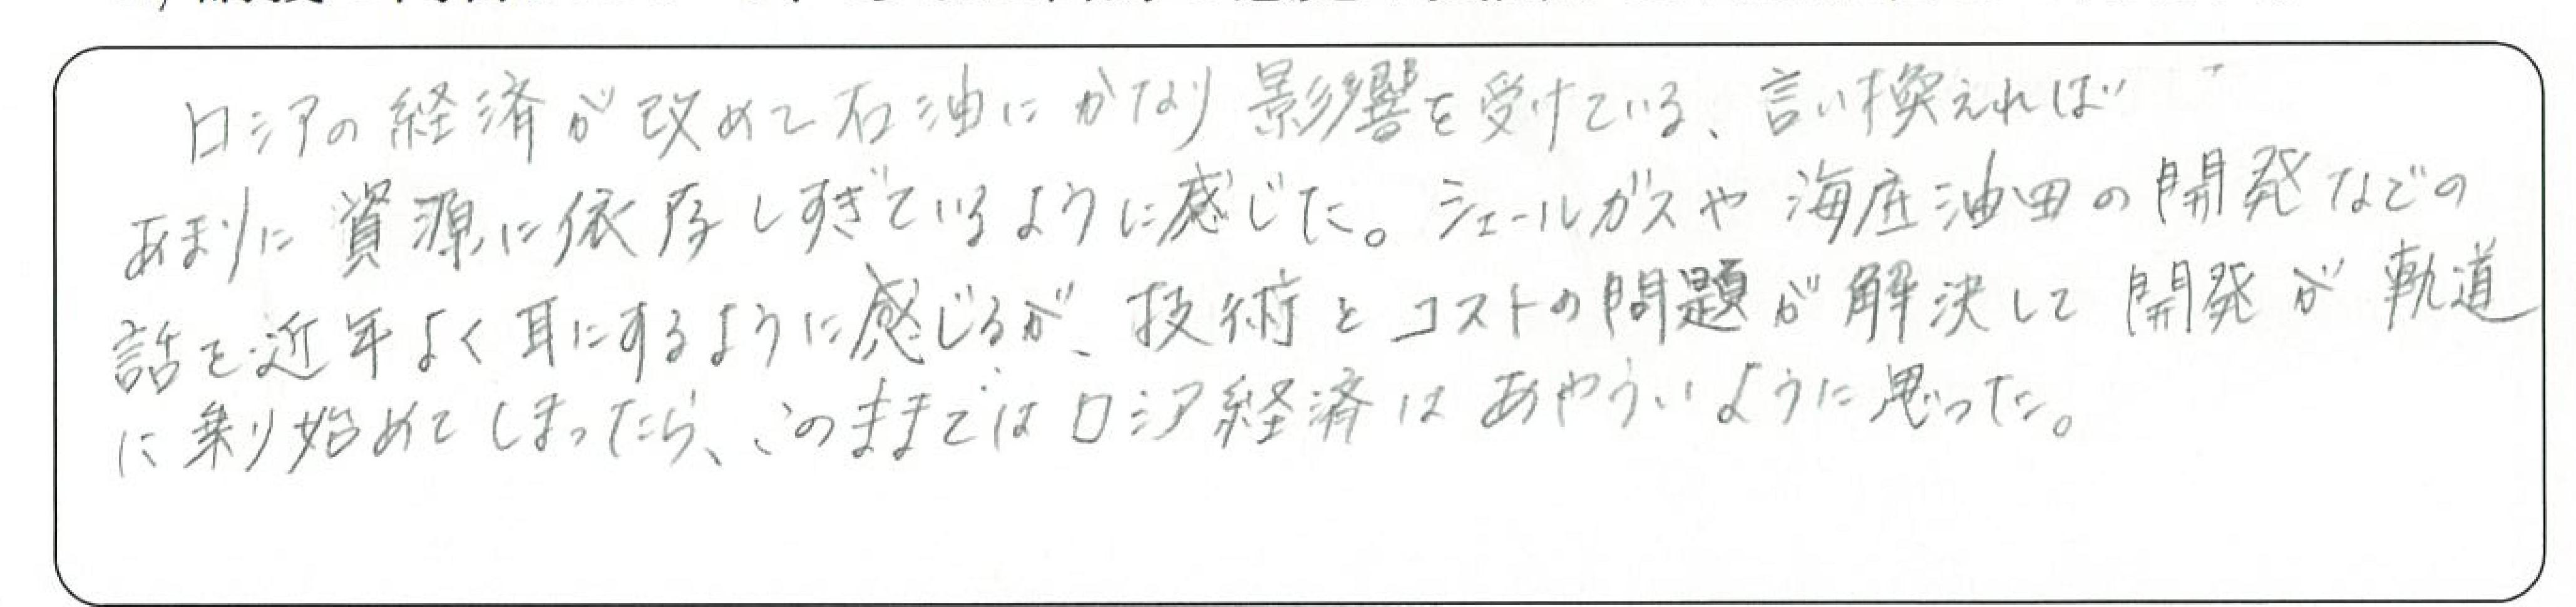 ロシアの経済が改めて石油にかなり影響を受けている、言い換えれば
あまりに資源に依存しすぎているように感じた。シェールガスや海底油田の開発などの
話を近年よく耳にするように感じるが、技術とコストの問題が解決して開発が軌道
に乗り始めてしまったら、このままではロシア経済はあやういように思った。